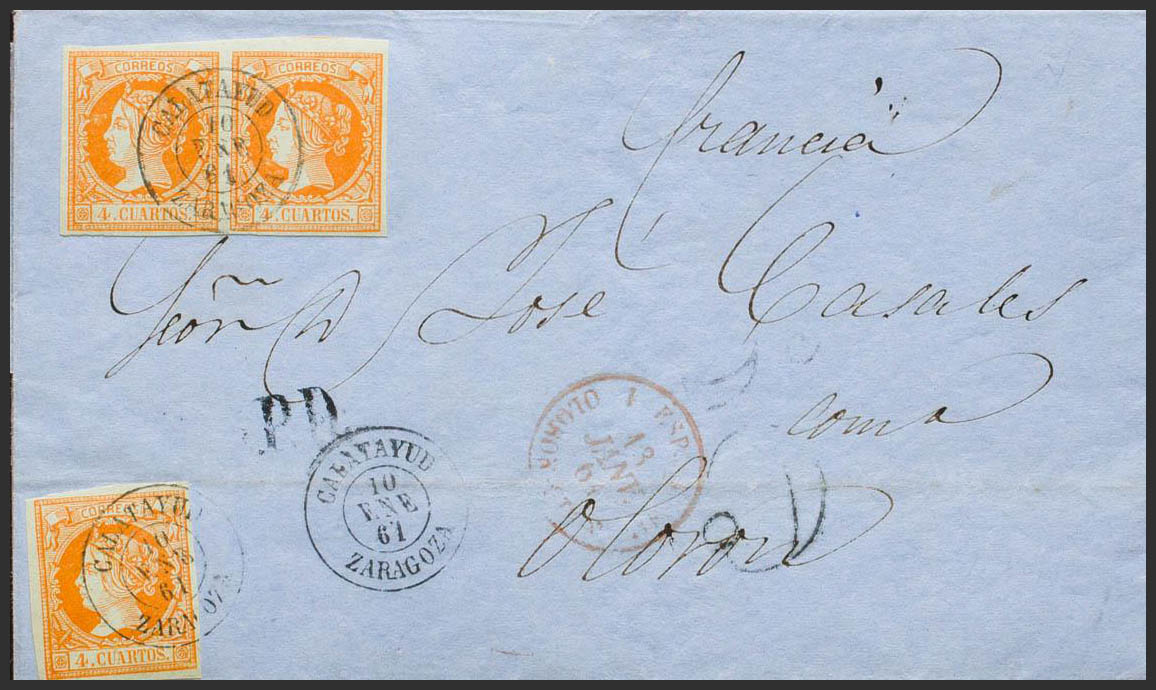 CORREOS CORREOS
4. CUARTOS. 4. CUARTOS.
CALATAYUD
10
ENE
61
ZARAGOZA
Francia
Señor D José Casales
Oloron
P.D.
CALATAYUD
10
ENE
61
ZARAGOZA
ESP.
13
JANV.
61
CORREOS
4. CUARTOS.
CALATAYUD
10
ENE
61
ZARAGOZA